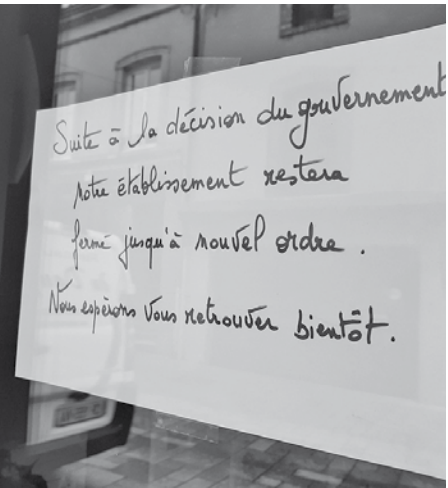 Suite à la décision du gouvernement
notre établissement restera
fermé jusqu'à nouvel ordre.
Nous espérons vous retrouver bientôt.